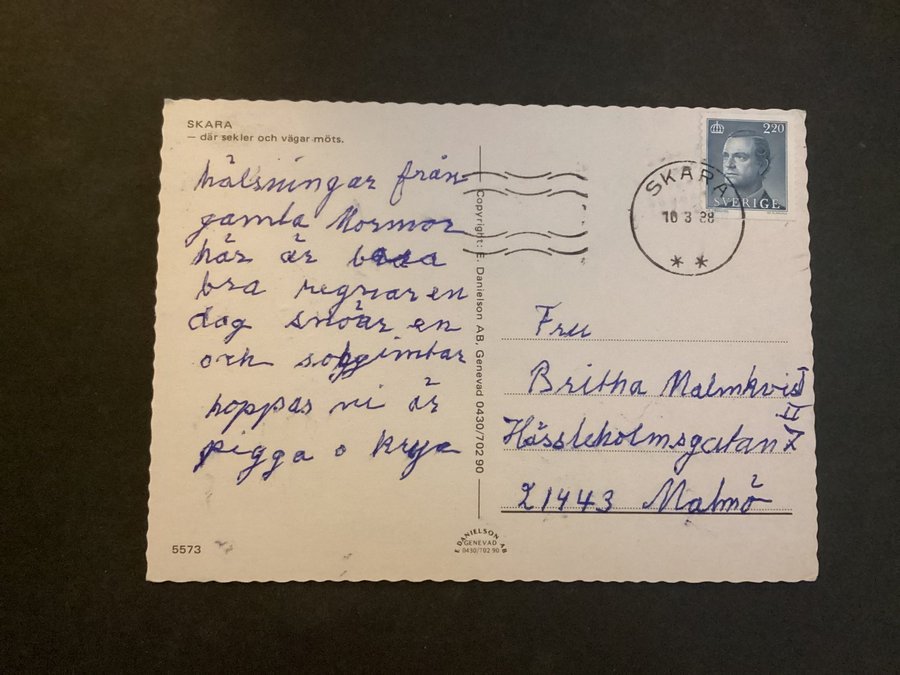 SKARA
— där sekler och vägar möts.
hälsningar från
gamla Mormor
här är
bra regnar en
dag snöar en
och
hoppas ni är
pigga o krya
5573
Copyright: E. Danielson AB, Genevad 0430/702 90
E DANIELSON AB
GENEVAD
0430/702 90
220
SVERIGE
SKARA
10 3 88
Fru
Britha Malmkvist
II
Hässleholmsgatan 7
21443 Malmö